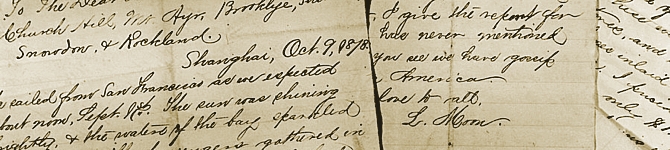 To The Dear
Church Hill, Mt. Ayr, Brooklye,
Snowdon, & Rockland.
Shanghai, Oct. 9, 1878.
sailed from San Francisco as we expected
about noon, Sept. The sun was shining
brightly, & the waters of the bay sparkled
gathered in
I give the report for
has never mentioned
you see we have gossip
America
love to all,
L. Moon.
and
I
only